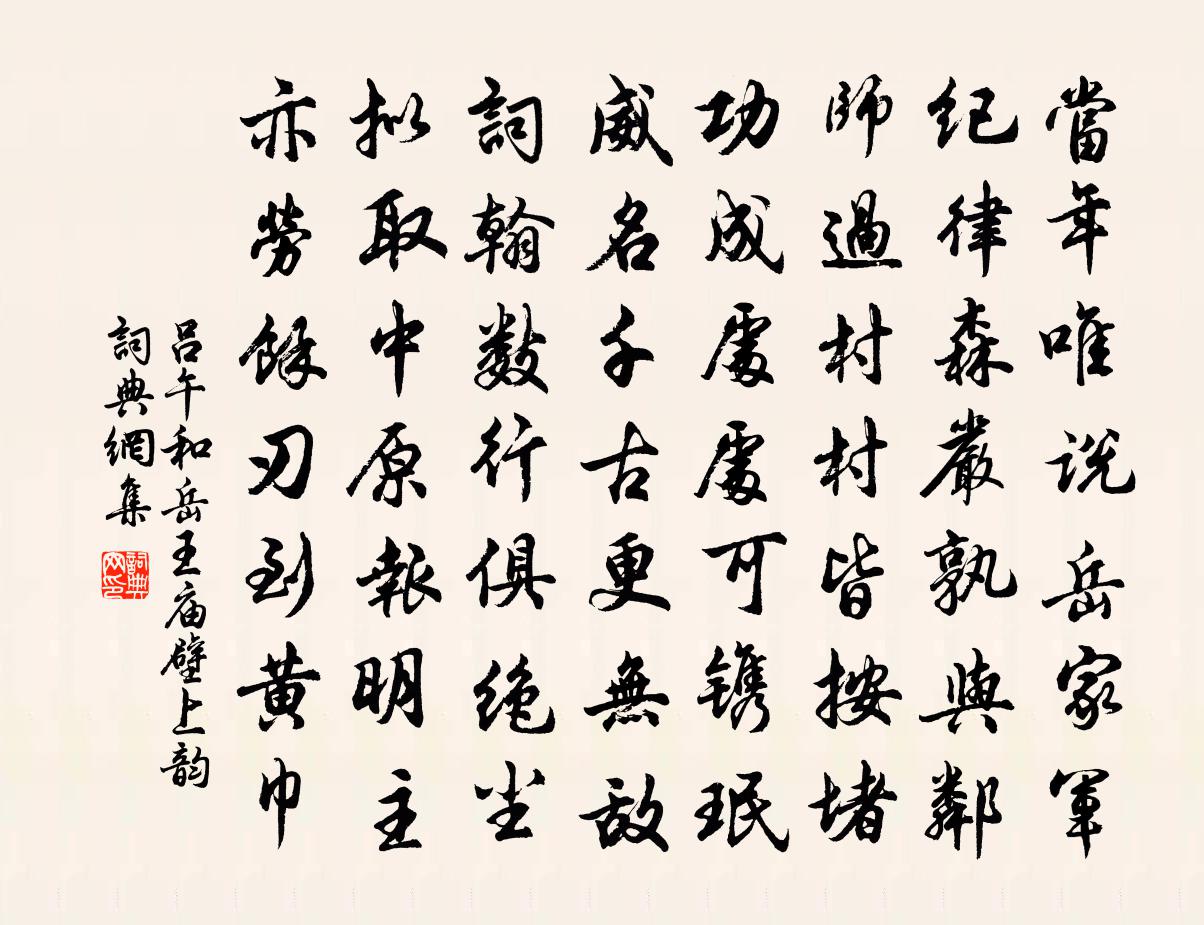 當年唯说岳家軍
紀律森嚴孰與鄰
師過村村皆按堵
功成處處可镌珉
威名千古更無敵
詞翰數行俱绝塵
拟取中原報明主
亦勞餘刃到黃巾
吕午和岳王庙壁上韵
詞典網集
詞典
网印